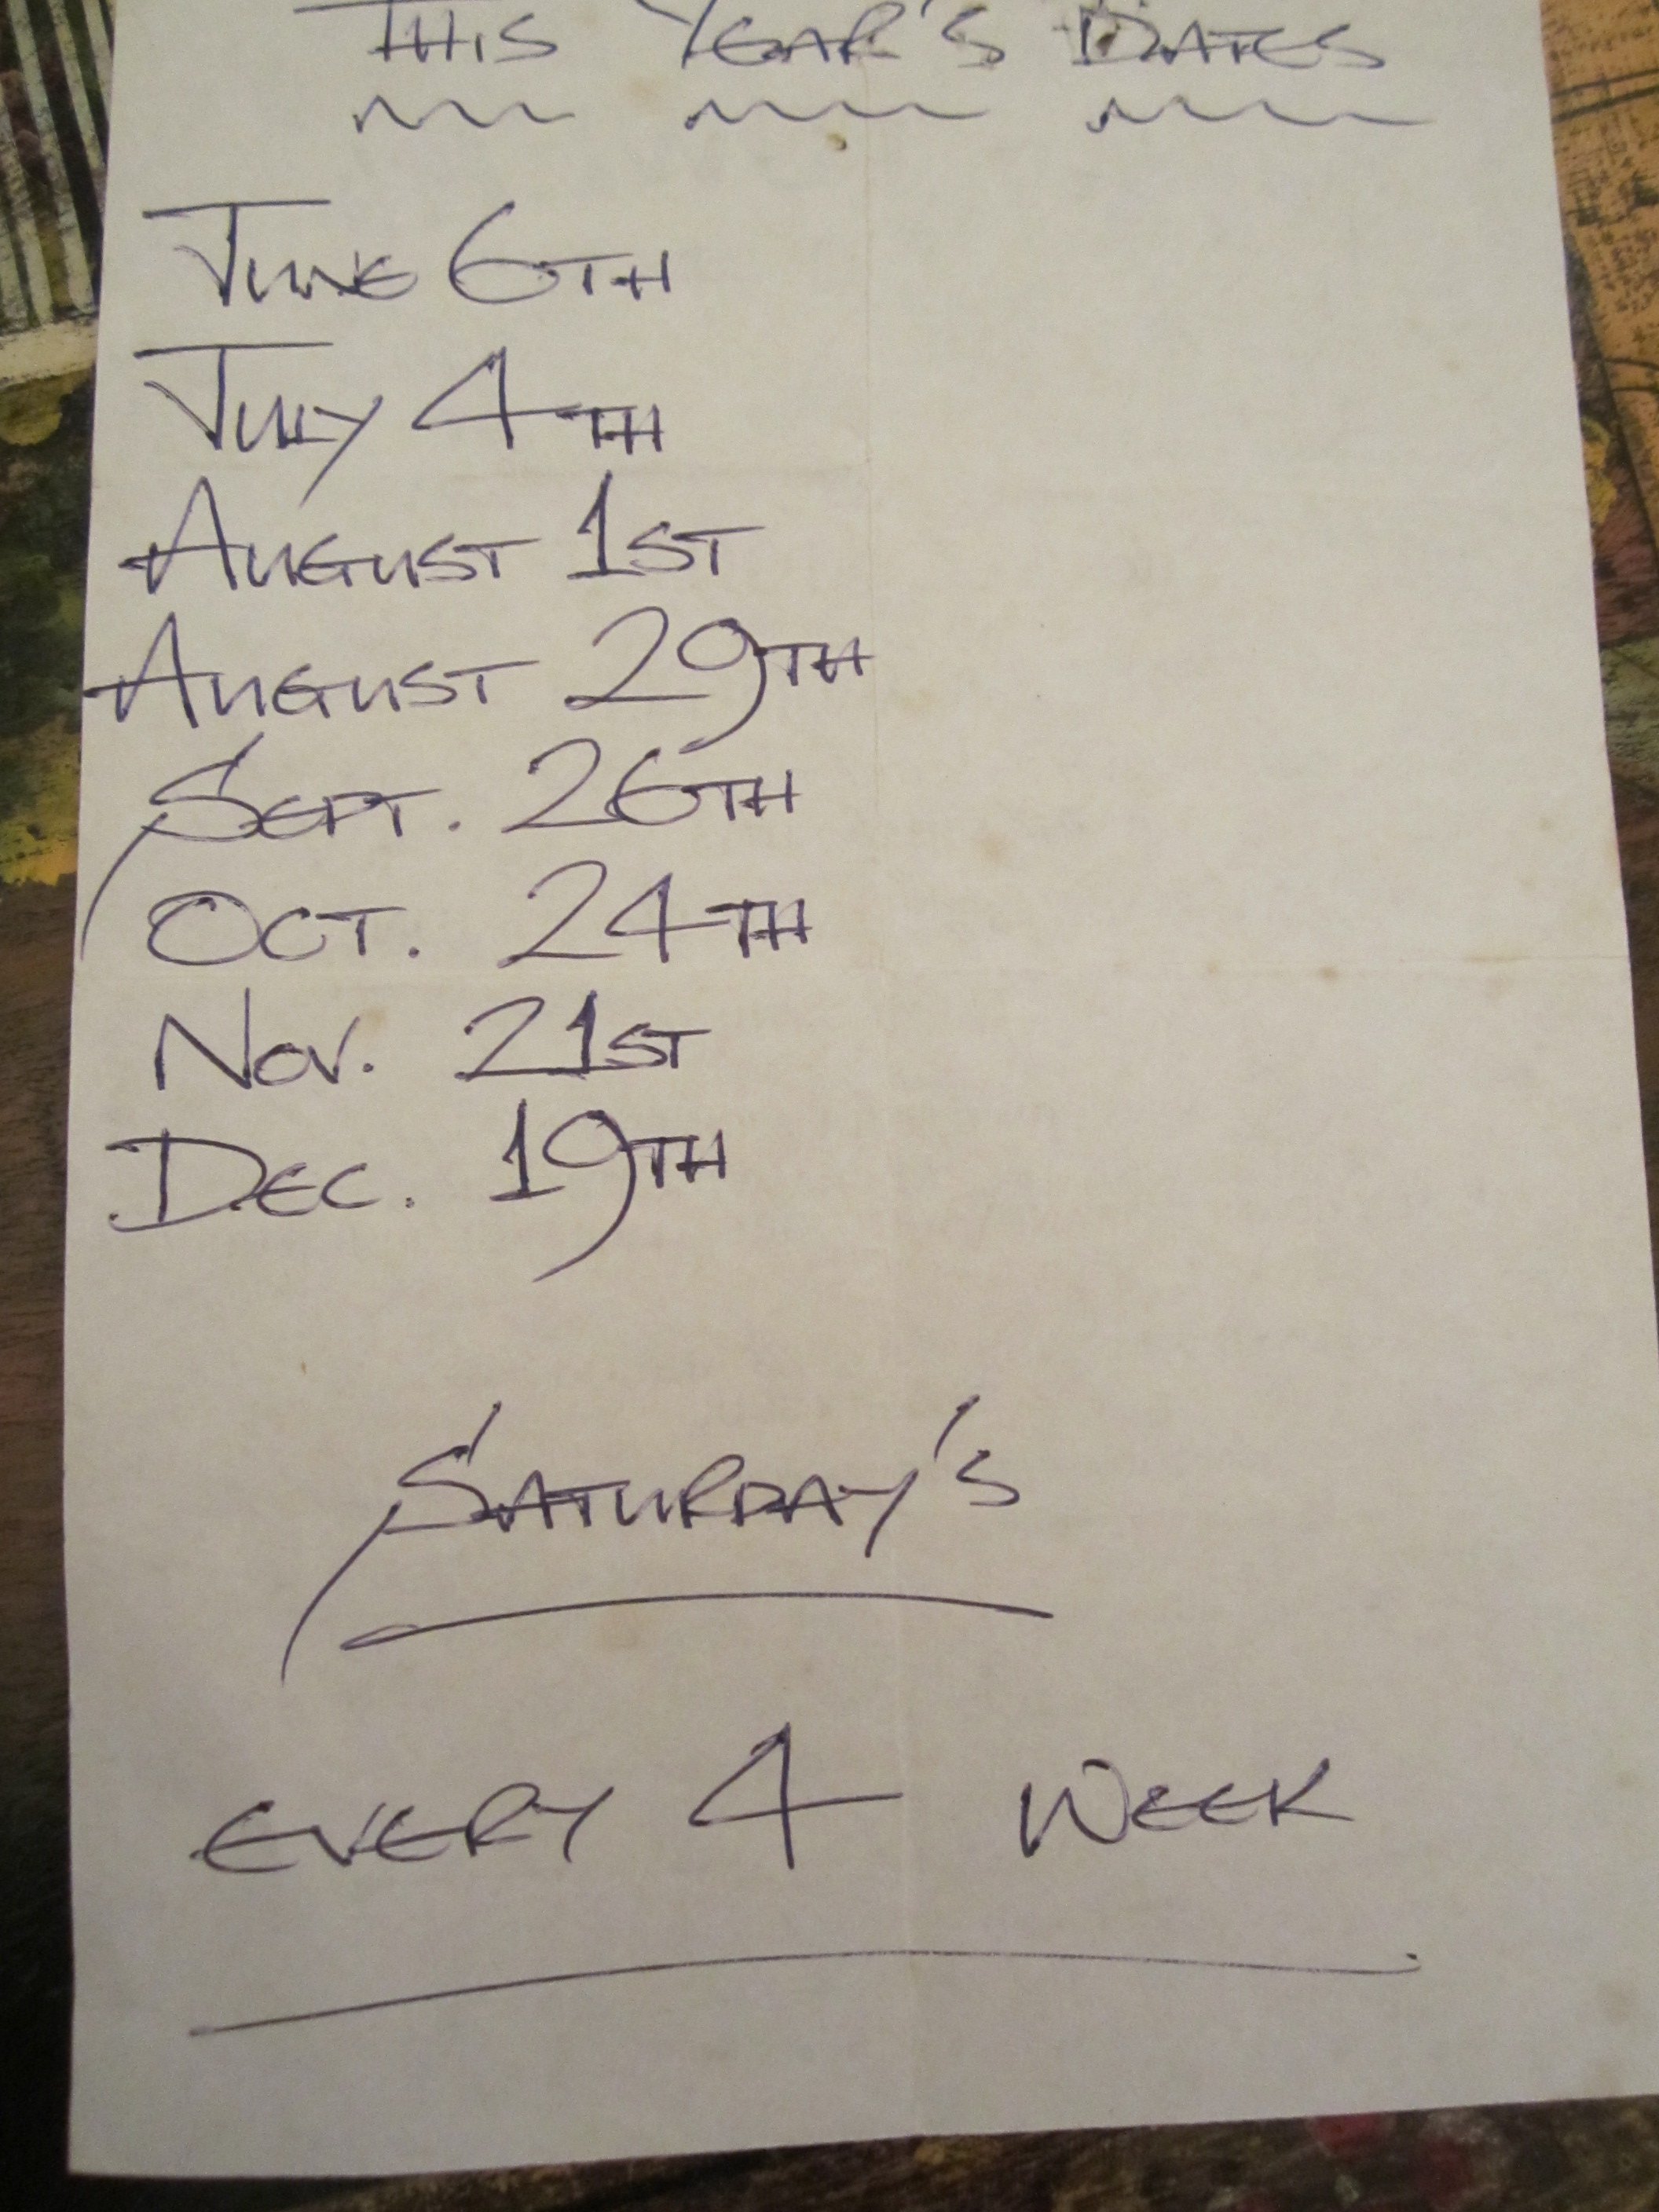 THIS YEAR'S DATES
JUNE 6TH
JULY 4TH
AUGUST 1ST
AUGUST 29TH
SEPT. 26TH
OCT. 24TH
NOV. 21ST
DEC. 19TH
SATURDAY'S
EVERY 4 WEEK